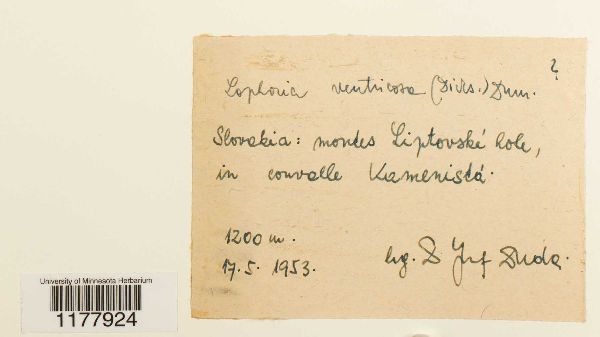 ?
Lophozia ventricosa (Dicks.) Dum.
Slovakia: montes Liptovské hole,
in convalle Kamenistá.
1200 m.
17.5. 1953.
leg. Duda.
University of Minnesota Herbarium
1177924